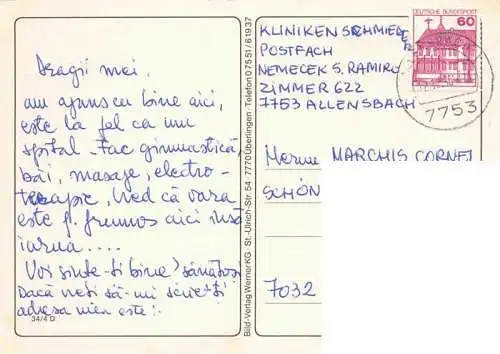 Dragii mei,
am ajuns cu bine aici,
este la fel ca un
spital. Fac gimnastică,
băi, masaje, electro-
terapie, Ved că vara
este f. frumos aici însă
iarna....
Voi sînte-ți bine? sănătoși
Dacă vreți să-mi scrieți
adresa mea este:
34/4 D
Bild-Verlag Werner KG St.-Ulrich-Str. 54 7770 Überlingen Telefon 0 75 51 / 6 19 37
KLINIKEN SCHMIEDER
POSTFACH
NEMECEK S. RAMIRO
ZIMMER 622
7753 ALLENSBACH
DEUTSCHE BUNDESPOST
60
7753
MARCHIS CORNEL
SCHÖN
7032